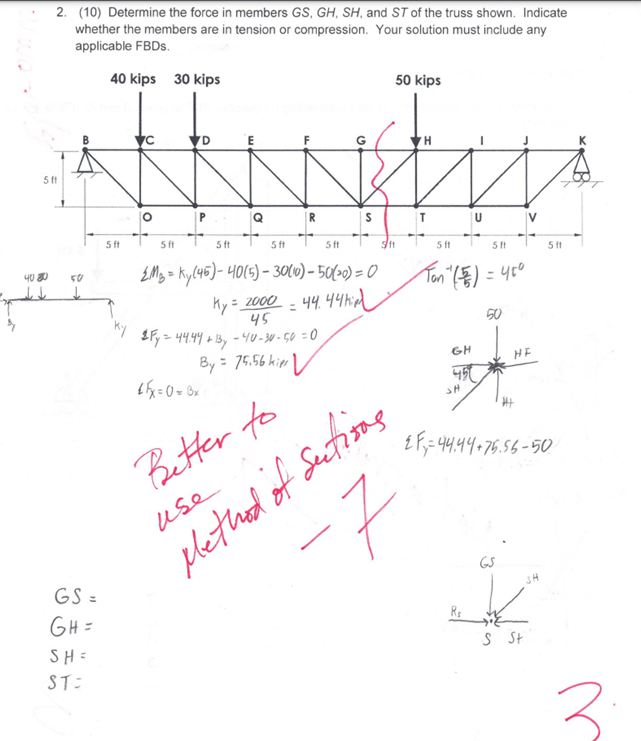 2. (10) Determine the force in members GS, GH, SH, and ST of the truss shown. Indicate
whether the members are in tension or compression. Your solution must include any
applicable FBDs.
40 kips 30 kips 50 kips
B C D E F G H I J K
5 ft
O P Q R S T U V
5 ft 5 ft 5 ft 5 ft 5 ft 5 ft 5 ft 5 ft 5 ft
40 30 50
By Ky
ΣMB = Ky(45) - 40(5) - 30(10) - 50(30) = 0
Ky = 2000/45 = 44.44 kips
ΣFy = 44.44 + By - 40 - 30 - 50 = 0
By = 75.56 kips
ΣFx = 0 = Bx
Tan⁻¹(5/5) = 45°
50
GH
45°
SH
ΣFy = 44.44 + 75.56 - 50
Better to
use
Method of Sections
-7
GS
SH
S St
GS =
GH =
SH =
ST =
3